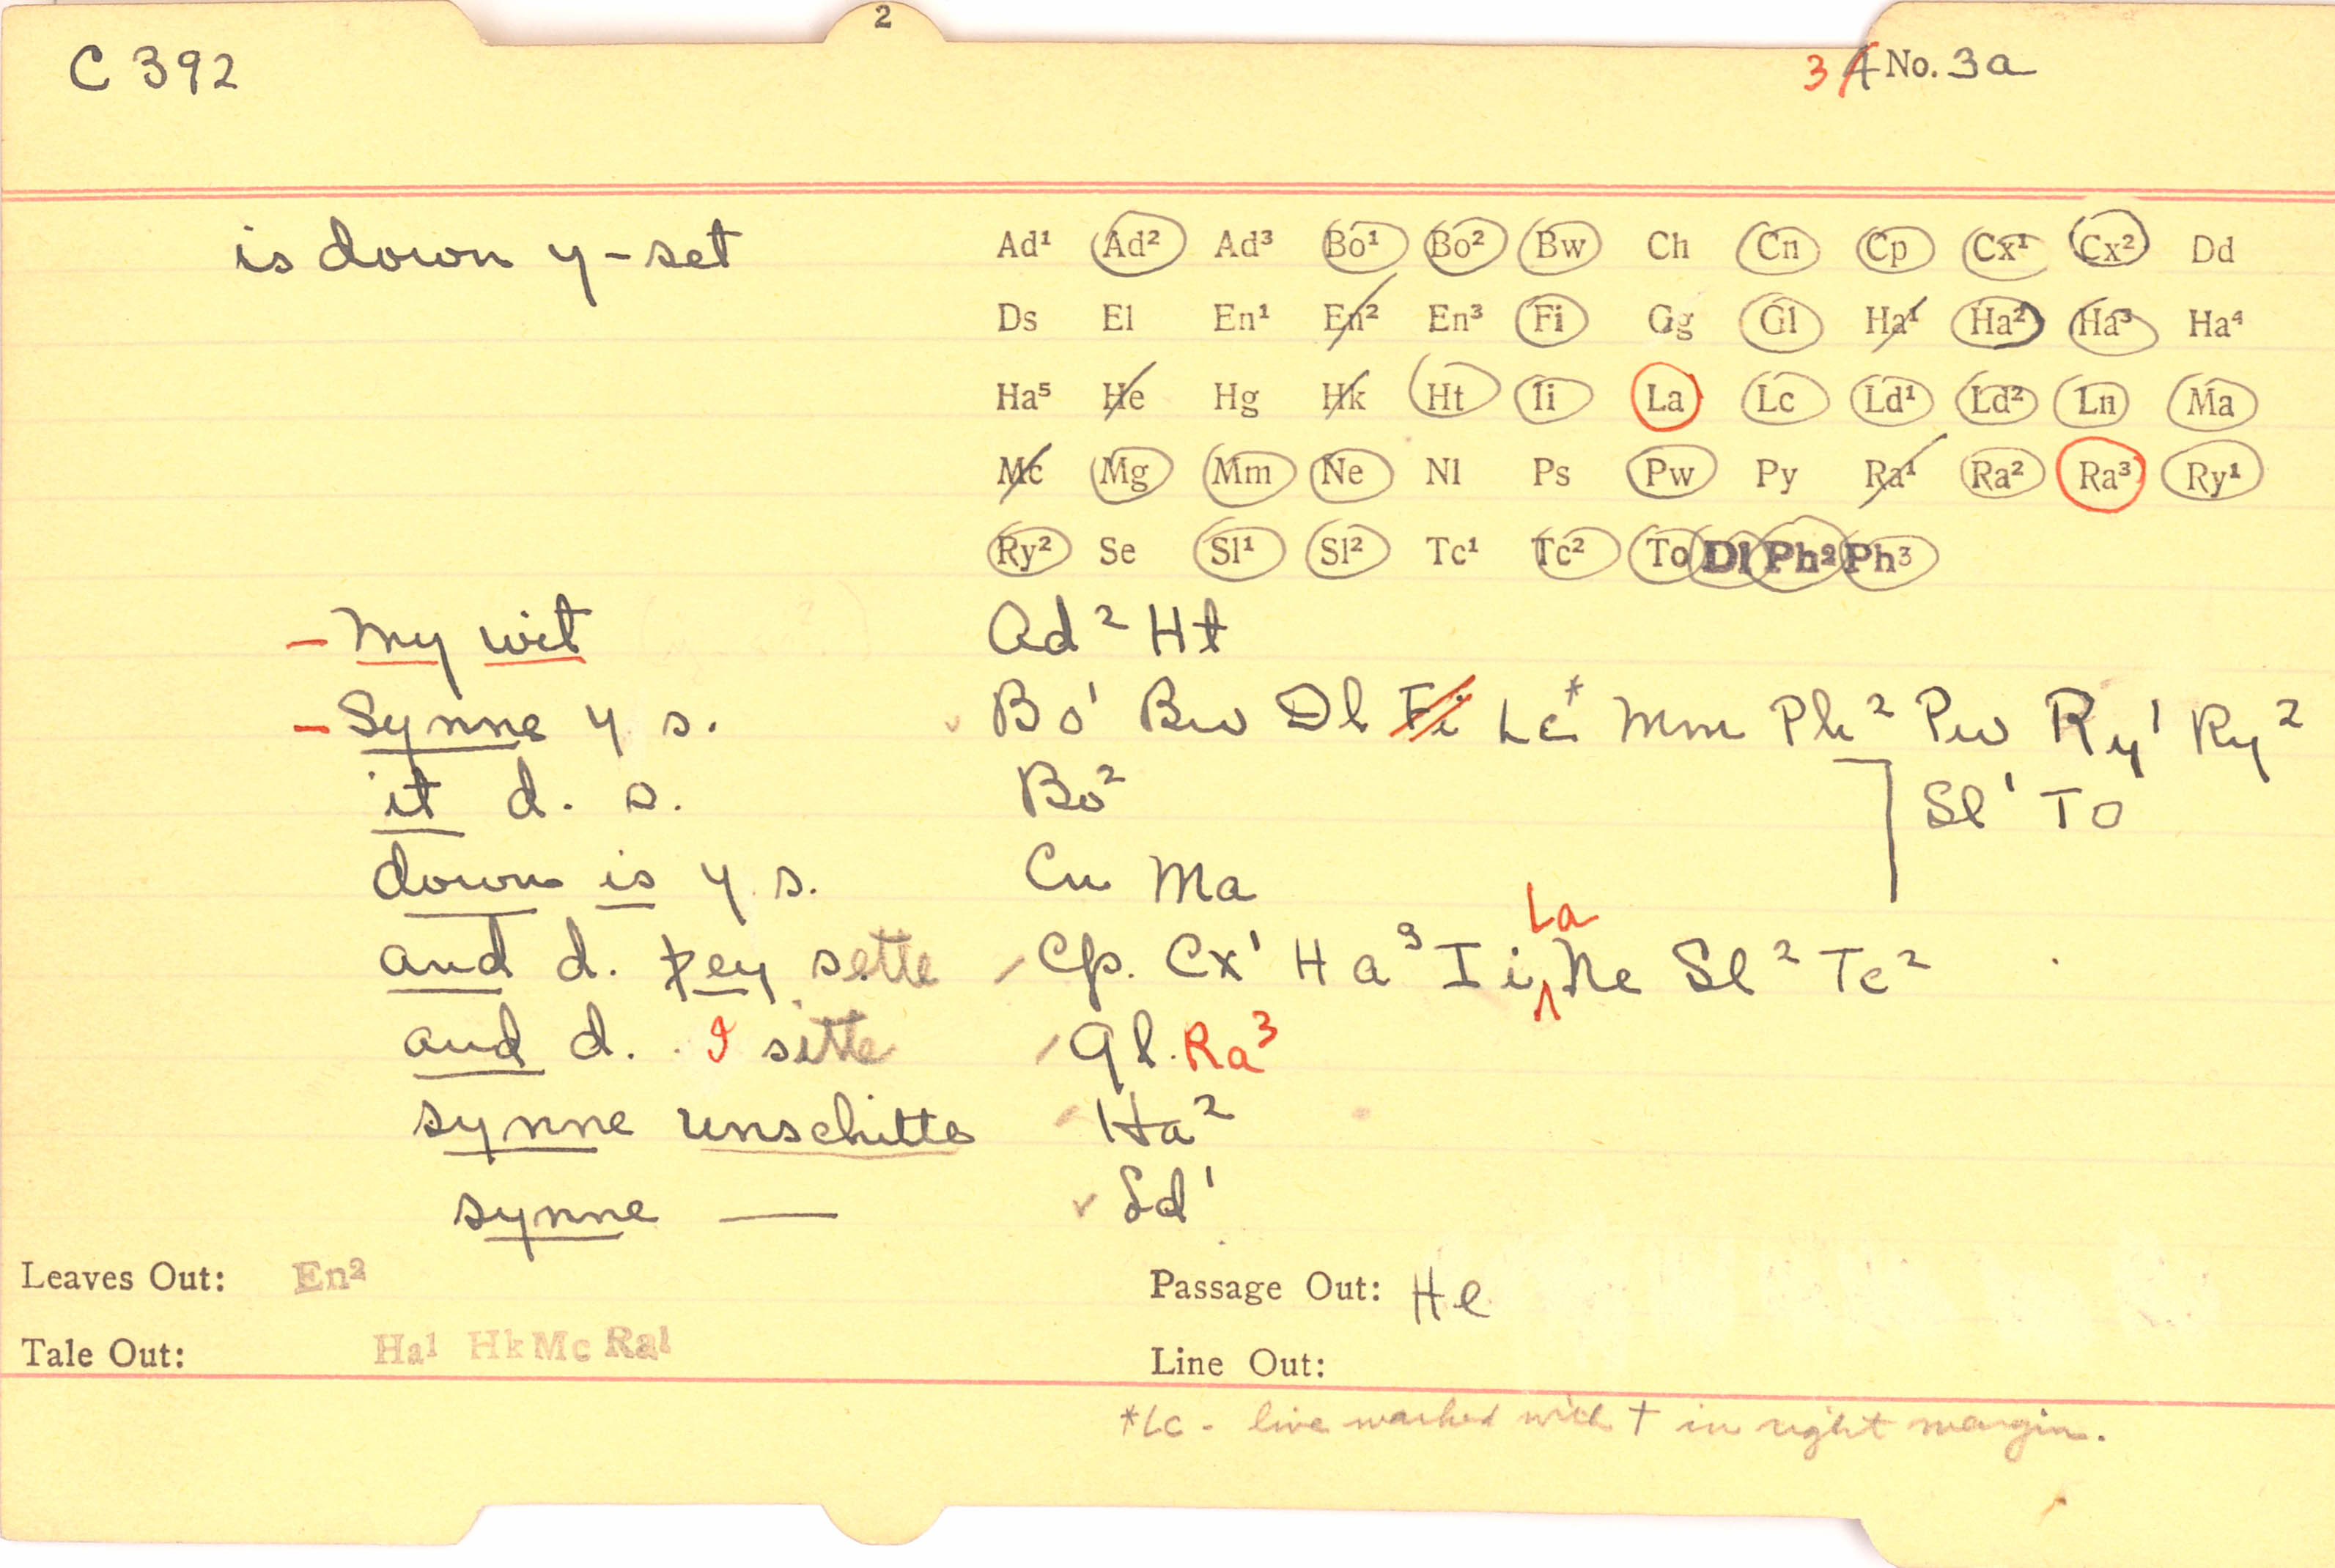 2
C 392
3 4 No. 3a
is down y-set
Ad¹ Ad² Ad³ Bo¹ Bo² Bw Ch Cn Cp Cx¹ Cx² Dd
Ds El En¹ En² En³ Fi Gg Gl Ha¹ Ha² Ha³ Ha⁴
Ha⁵ He Hg Hk Ht Ii La Lc Ld¹ Ld² Ln Ma
Mc Mg Mm Ne Nl Ps Pw Py Ra¹ Ra² Ra³ Ry¹
Ry² Se Sl¹ Sl² Tc¹ Tc² To Dl Ph² Ph³
– My wit Ad² Ht
– Synne y s. Bo¹ Bw Dl Fi Lc* Mm Ph² Pw Ry¹ Ry²
Sl¹ To
it d. s. Bo²
down is y s. Cn Ma
and d. þey sette Cp. Cx¹ Ha³ Ii La Ne Sl² Tc²
and d. I sette Gl. Ra³
synne unschitte Ha²
synne — Ld¹
Leaves Out: En² Passage Out: He
Tale Out: Ha¹ Hk Mc Ra¹ Line Out:
*Lc - line marked with † in right margin.